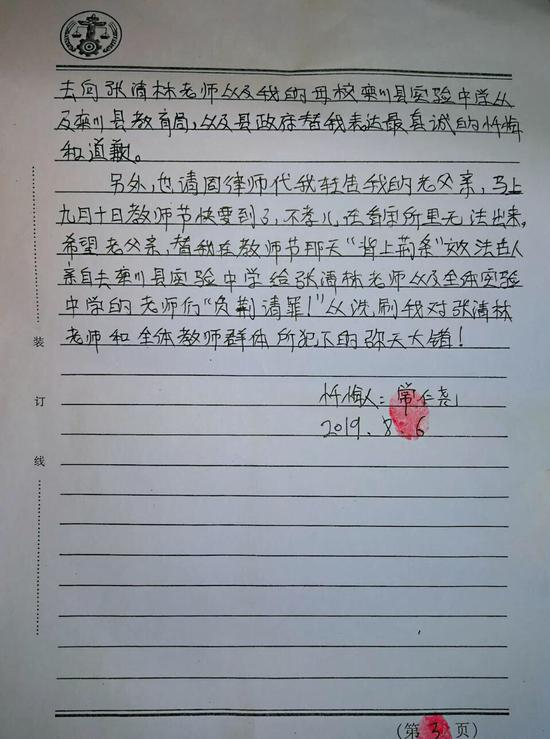 去向张清林老师以及我的母校栾川县实验中学以
及栾川县教育局，以及县政府替我表达最真诚的忏悔
和道歉。
另外，也请国律师代我转告我的老父亲，马上
九月十日教师节快要到了，不孝儿在看守所里无法出来。
希望老父亲，替我在教师节那天“背上荆条”效法古人
亲自去栾川县实验中学给张清林老师以及全体实验
中学的老师们“负荆请罪！”以洗刷我对张清林
老师和全体教师群体所犯下的弥天大错！
忏悔人：常仁尧
2019.8.6
装
订
线
(第3页)